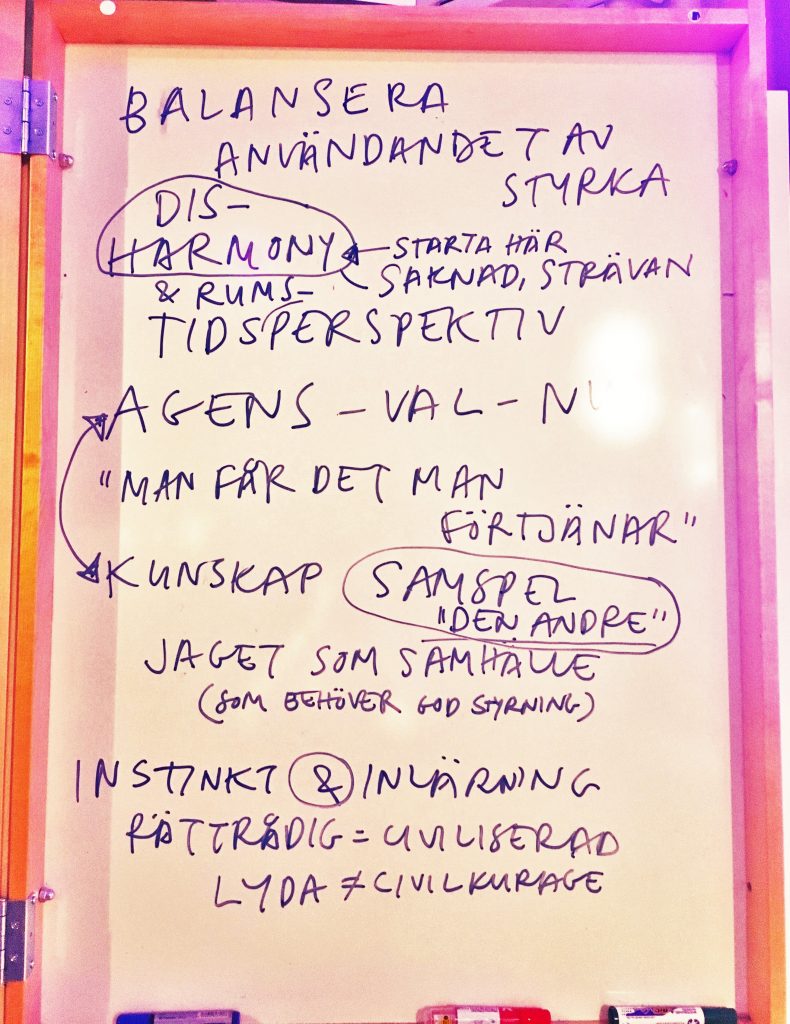 BALANSERA
ANVÄNDANDET AV
STYRKA
DIS-
HARMONY
STARTA HÄR
SAKNAD, STRÄVAN
& RUMS-
TIDSPERSPEKTIV
AGENS - VAL -
"MAN FÅR DET MAN
FÖRTJÄNAR"
KUNSKAP
SAMSPEL
"DEN ANDRE"
JAGET SOM SAMHÄLLE
(SOM BEHÖVER GOD STYRNING)
INSTINKT & INLÄRNING
RÄTTRÅDIG = CIVILISERAD
LYDA ≠ CIVILKURAGE